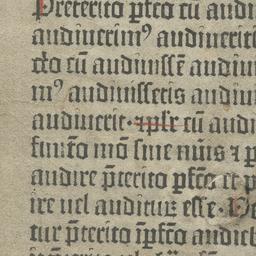 Preterito ꝑfco cū audi
audiuerimꝰ audiueriti
cūo cū audiuissē audiu
mꝰ audiuissetis audiu
audiuerit · ⁊ plr cū audi
finito mō sine nūis ⁊ p
audire p̄terito ꝑfco et p
ire uel auditur esse · De
tur p̄terito īꝑfco audieb